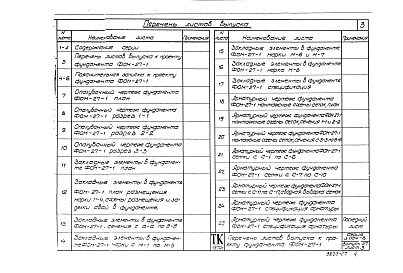 Перечень листов выпуска
3
N листа
Наименование листа
Примечание
1-2
Содержание серии
3
Перечень листов выпуска к проекту
фундамента ФОМ-27-1
4-6
Пояснительная записка к проекту
фундамента ФОМ-27-1
7
Опалубочный чертеж фундамента
ФОМ-27-1 план
8
Опалубочный чертеж фундамента
ФОМ-27-1 разрез 1-1
9
Опалубочный чертеж фундамента
ФОМ-27-1 разрез 2-2
10
Опалубочный чертеж фундамента
ФОМ-27-1 разрез 3-3
11
Закладные элементы в фундамен-
те ФОМ-27-1 план
12
Закладные элементы в фундамен-
те ФОМ-27-1 план размещения
марки М-4, схемы размещения и за-
делки свай в фундаменте
13
Закладные элементы в фундаменте
ФОМ-27-1, сечения с а-а по в-в
14
Закладные элементы в фундамен-
те ФОМ-27-1 марки с М-1 по М-5
N листа
Наименование листа
Примечание
15
Закладные элементы в фундаменте
ФОМ-27-1 марки М-6 и М-7
16
Закладные элементы в фундаменте
ФОМ-27-1 марка М-8
17
Закладные элементы в фундаменте
ФОМ-27-1 спецификация
18
Арматурный чертеж фундамента
ФОМ-27-1 монтажные схемы сеток, план
19
Арматурный чертеж фундамента ФОМ-27-1
20
Арматурный чертеж фундамента ФОМ-27-1
21
Арматурный чертеж фундамента ФОМ-27-1
сетки с С-1 по С-6
22
Арматурный чертеж фундамента
ФОМ-27-1 сетки с С-7 по С-10
23
Арматурный чертеж фундамента ФОМ-27-1
24
Арматурный чертеж фундамента
ФОМ-27-1 спецификация арматуры
25
Арматурный чертеж фундамента
ФОМ-27-1 спецификация арматуры
Последний
лист
ТК
Перечень листов выпуска к про-
екту фундамента ФОМ-27-1